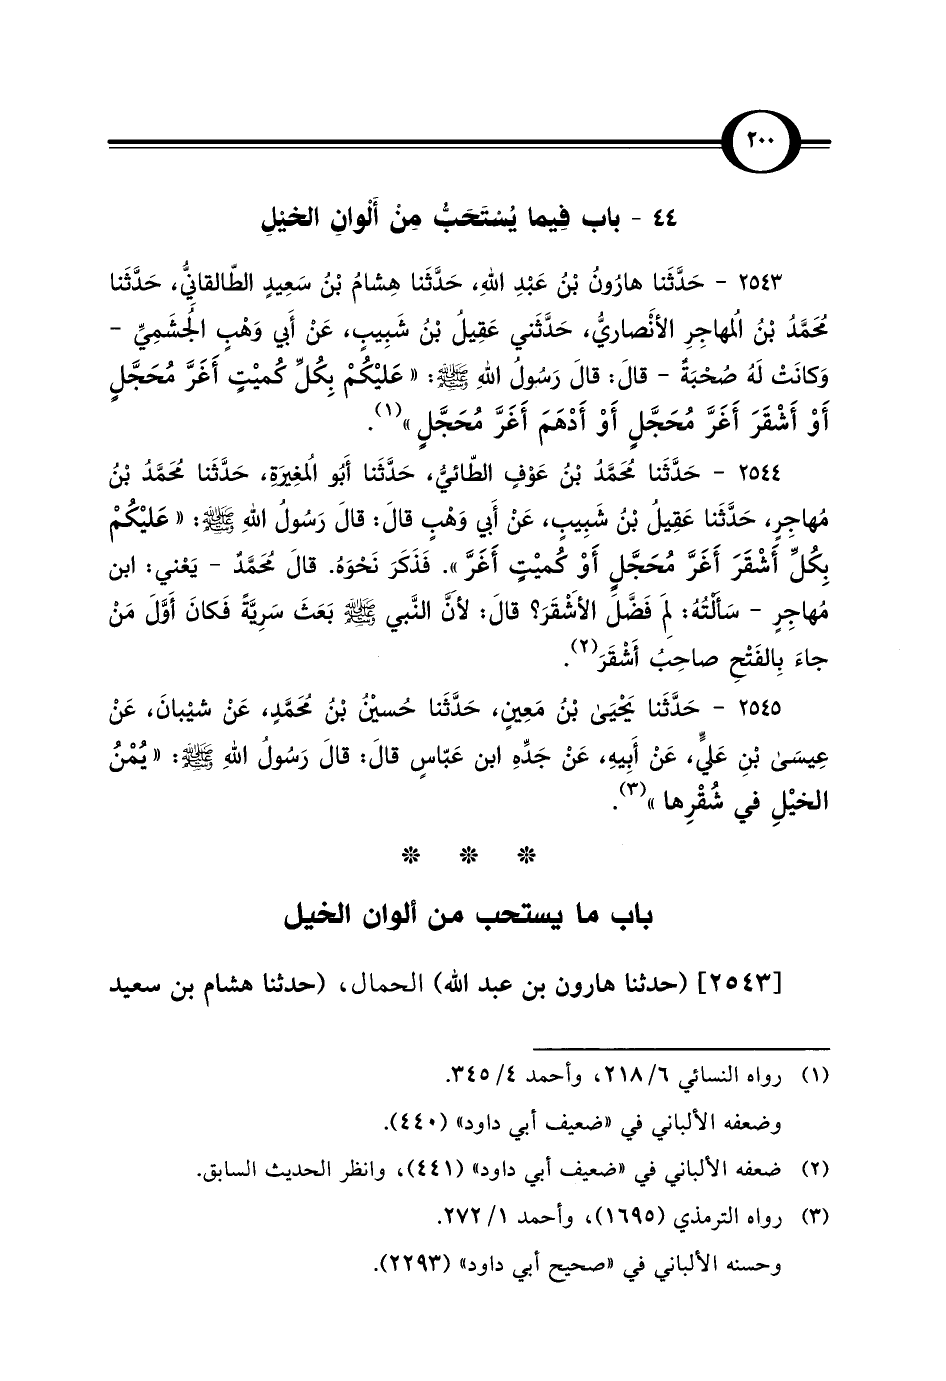 ٢٠٠
٤٤ - باب فِيما يُسْتَحَبُّ مِنْ أَلْوانِ الخيْلِ
٢٥٤٣ - حَدَّثَنا هارُونُ بْنُ عَبْدِ اللهِ، حَدَّثَنا هِشامُ بْنُ سَعِيدٍ الطّالقانيُّ، حَدَّثَنا
مُحَمَّدُ بْنُ المُهاجِرِ الأَنْصاريُّ، حَدَّثَني عَقِيلُ بْنُ شَبِيبٍ، عَنْ أَبي وَهْبٍ الجُشَميِّ -
وَكانَتْ لَهُ صُحْبَةٌ - قالَ: قالَ رَسُولُ اللهِ ﷺ: « عَلَيْكُمْ بِكُلِّ كُميْتٍ أَغَرَّ مُحَجَّلٍ
أَوْ أَشْقَرَ أَغَرَّ مُحَجَّلٍ أَوْ أَدْهَمَ أَغَرَّ مُحَجَّلٍ »(١).
٢٥٤٤ - حَدَّثَنا مُحَمَّدُ بْنُ عَوْفٍ الطّائيُّ، حَدَّثَنا أَبُو المُغِيرَةِ، حَدَّثَنا مُحَمَّدُ بْنُ
مُهاجِرٍ، حَدَّثَنا عَقِيلُ بْنُ شَبِيبٍ، عَنْ أَبي وَهْبٍ قالَ: قالَ رَسُولُ اللهِ ﷺ: « عَلَيْكُمْ
بِكُلِّ أَشْقَرَ أَغَرَّ مُحَجَّلٍ أَوْ كُميْتٍ أَغَرَّ ». فَذَكَرَ نَحْوَهُ. قالَ مُحَمَّدٌ - يَعْني: ابن
مُهاجِرٍ - سَأَلْتُهُ: لِمَ فَضَّلَ الأشْقَرَ؟ قالَ: لأنَّ النَّبي ﷺ بَعَثَ سَرِيَّةً فَكانَ أَوَّلَ مَنْ
جاءَ بِالفَتْحِ صاحِبُ أَشْقَرَ(٢).
٢٥٤٥ - حَدَّثَنا يَحْيَىٰ بْنُ مَعِينٍ، حَدَّثَنا حُسيْنُ بْنُ مُحَمَّدٍ، عَنْ شيْبانَ، عَنْ
عِيسَىٰ بْنِ عَليٍّ، عَنْ أَبِيهِ، عَنْ جَدِّهِ ابن عَبّاسٍ قالَ: قالَ رَسُولُ اللهِ ﷺ: « يُمْنُ
الخيْلِ في شُقْرِها »(٣).
❊ ❊ ❊
باب ما يستحب من ألوان الخيل
[٢٥٤٣] (حدثنا هارون بن عبد الله) الحمال، (حدثنا هشام بن سعيد
(١) رواه النسائي ٦/ ٢١٨، وأحمد ٤/ ٣٤٥.
وضعفه الألباني في «ضعيف أبي داود» (٤٤٠).
(٢) ضعفه الألباني في «ضعيف أبي داود» (٤٤١)، وانظر الحديث السابق.
(٣) رواه الترمذي (١٦٩٥)، وأحمد ١/ ٢٧٢.
وحسنه الألباني في «صحيح أبي داود» (٢٢٩٣).